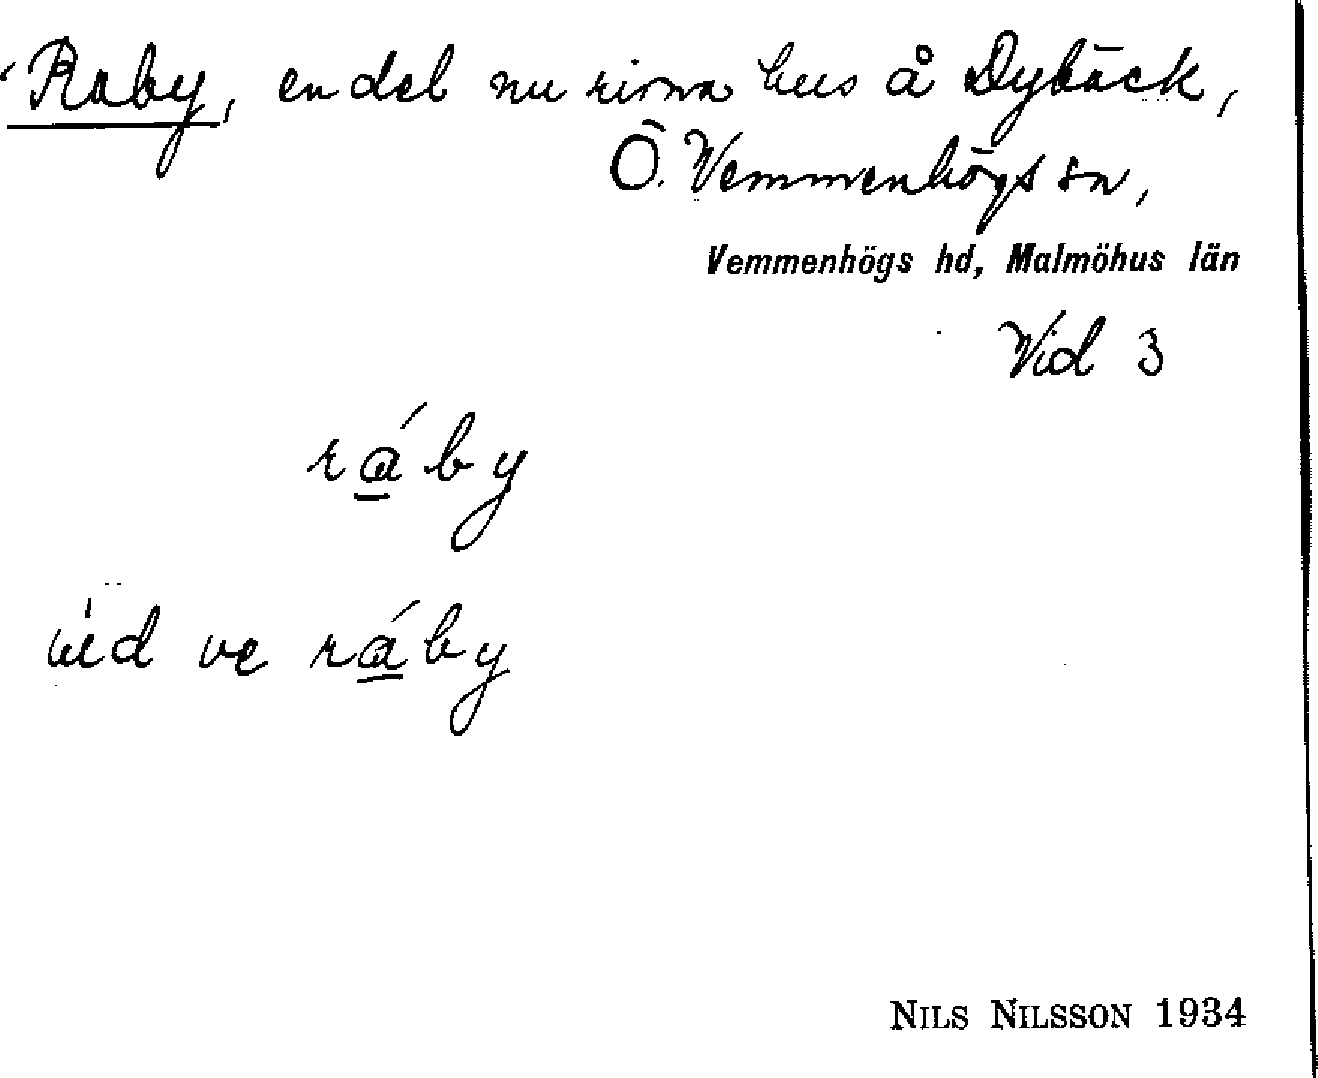 'Raby, en del nu rivna hus å Dybäck,
Ö. Vemmenhögs sn,
Vemmenhögs hd, Malmöhus län
Vid 3
ráby
ve ráby
NILS NILSSON 1934